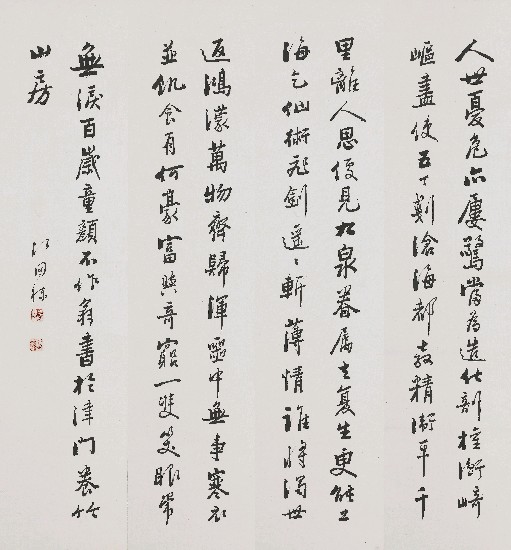 人世憂危亦屢驚當為造化剖權衡崎
嶇盡使五丁剗滄海都教精衛平千
里離人思便見九泉眷屬立復生更能上
海乞仙術飛劍遥遥斬薄情誰將濁世
返鴻濛萬物齊歸渾噩中無事寒衣
並飢食有何豪富與奇窮一雙笑眼常
無淚百歲童顏不作翁書於津門養竹
山房